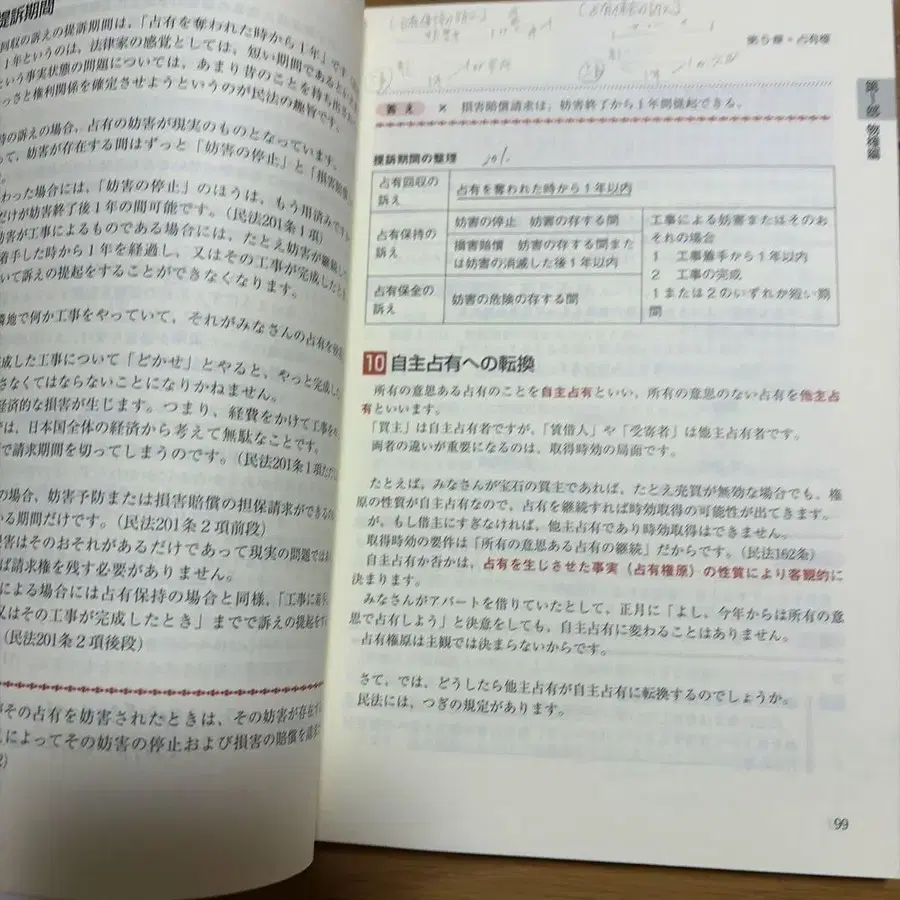 提訴期間
回収の訴えの提訴期間は、「占有を奪われた時から1年」です
1年というのは、法律家の感覚としては、短い期間であると
という事実状態の問題については、あまり昔のことを持ち出
さっさと権利関係を確定させようというのが民法の趣旨です。
持の訴えの場合、占有の妨害が現実のものとなっています。
って、妨害が存在する間はずっと「妨害の停止」と「損害賠償
わった場合には、「妨害の停止」のほうは、もう用済みです
だけが妨害終了後1年の間可能です。(民法201条1項)
妨害が工事によるものである場合には、たとえ妨害が継続し
着手した時から1年を経過し、又はその工事が完成したとき
いて訴えの提起をすることができなくなります。
隣地で何か工事をやっていて、それがみなさんの占有を妨
完成した工事について「どかせ」とやると、やっと完成し
さなくてはならないことになりかねません。
経済的な損害が生じます。つまり、経費をかけて工事を
では、日本国全体の経済から考えて無駄なことです。
で請求期間を切ってしまうのです。(民法201条1項ただ
の場合、妨害予防または損害賠償の担保請求ができるの
いる期間だけです。(民法201条2項前段)
害はそのおそれがあるだけであって現実の問題では
ば請求権を残す必要がありません。
による場合には占有保持の場合と同様、「工事に着手
又はその工事が完成したとき」までで訴えの提起を
(民法201条2項後段)
がその占有を妨害されたときは、その妨害が存在
によってその妨害の停止および損害の賠償を請
2)
第5章・占有権
第1部 物権編
答え × 損害賠償請求は、妨害終了から1年間提起できる。
提訴期間の整理
占有回収の訴え 占有を奪われた時から1年以内
占有保持の訴え 妨害の停止 妨害の存する間
損害賠償 妨害の存する間または妨害の消滅した後1年以内
占有保全の訴え 妨害の危険の存する間
工事による妨害またはそのおそれの場合
1 工事着手から1年以内
2 工事の完成
1または2のいずれか短い期間
10 自主占有への転換
所有の意思ある占有のことを自主占有といい、所有の意思のない占有を他主占
有といいます。
「買主」は自主占有者ですが、「賃借人」や「受寄者」は他主占有者です。
両者の違いが重要になるのは、取得時効の局面です。
たとえば、みなさんが宝石の買主であれば、たとえ売買が無効な場合でも、権
原の性質が自主占有なので、占有を継続すれば時効取得の可能性が出てきます。
が、もし借主にすぎなければ、他主占有であり時効取得はできません。
取得時効の要件は「所有の意思ある占有の継続」だからです。(民法162条)
自主占有か否かは、占有を生じさせた事実(占有権原)の性質により客観的に
決まります。
みなさんがアパートを借りていたとして、正月に「よし、今年からは所有の意
思で占有しよう」と決意をしても、自主占有に変わることはありません。
占有権原は主観では決まらないからです。
さて、では、どうしたら他主占有が自主占有に転換するのでしょうか。
民法には、つぎの規定があります。
99